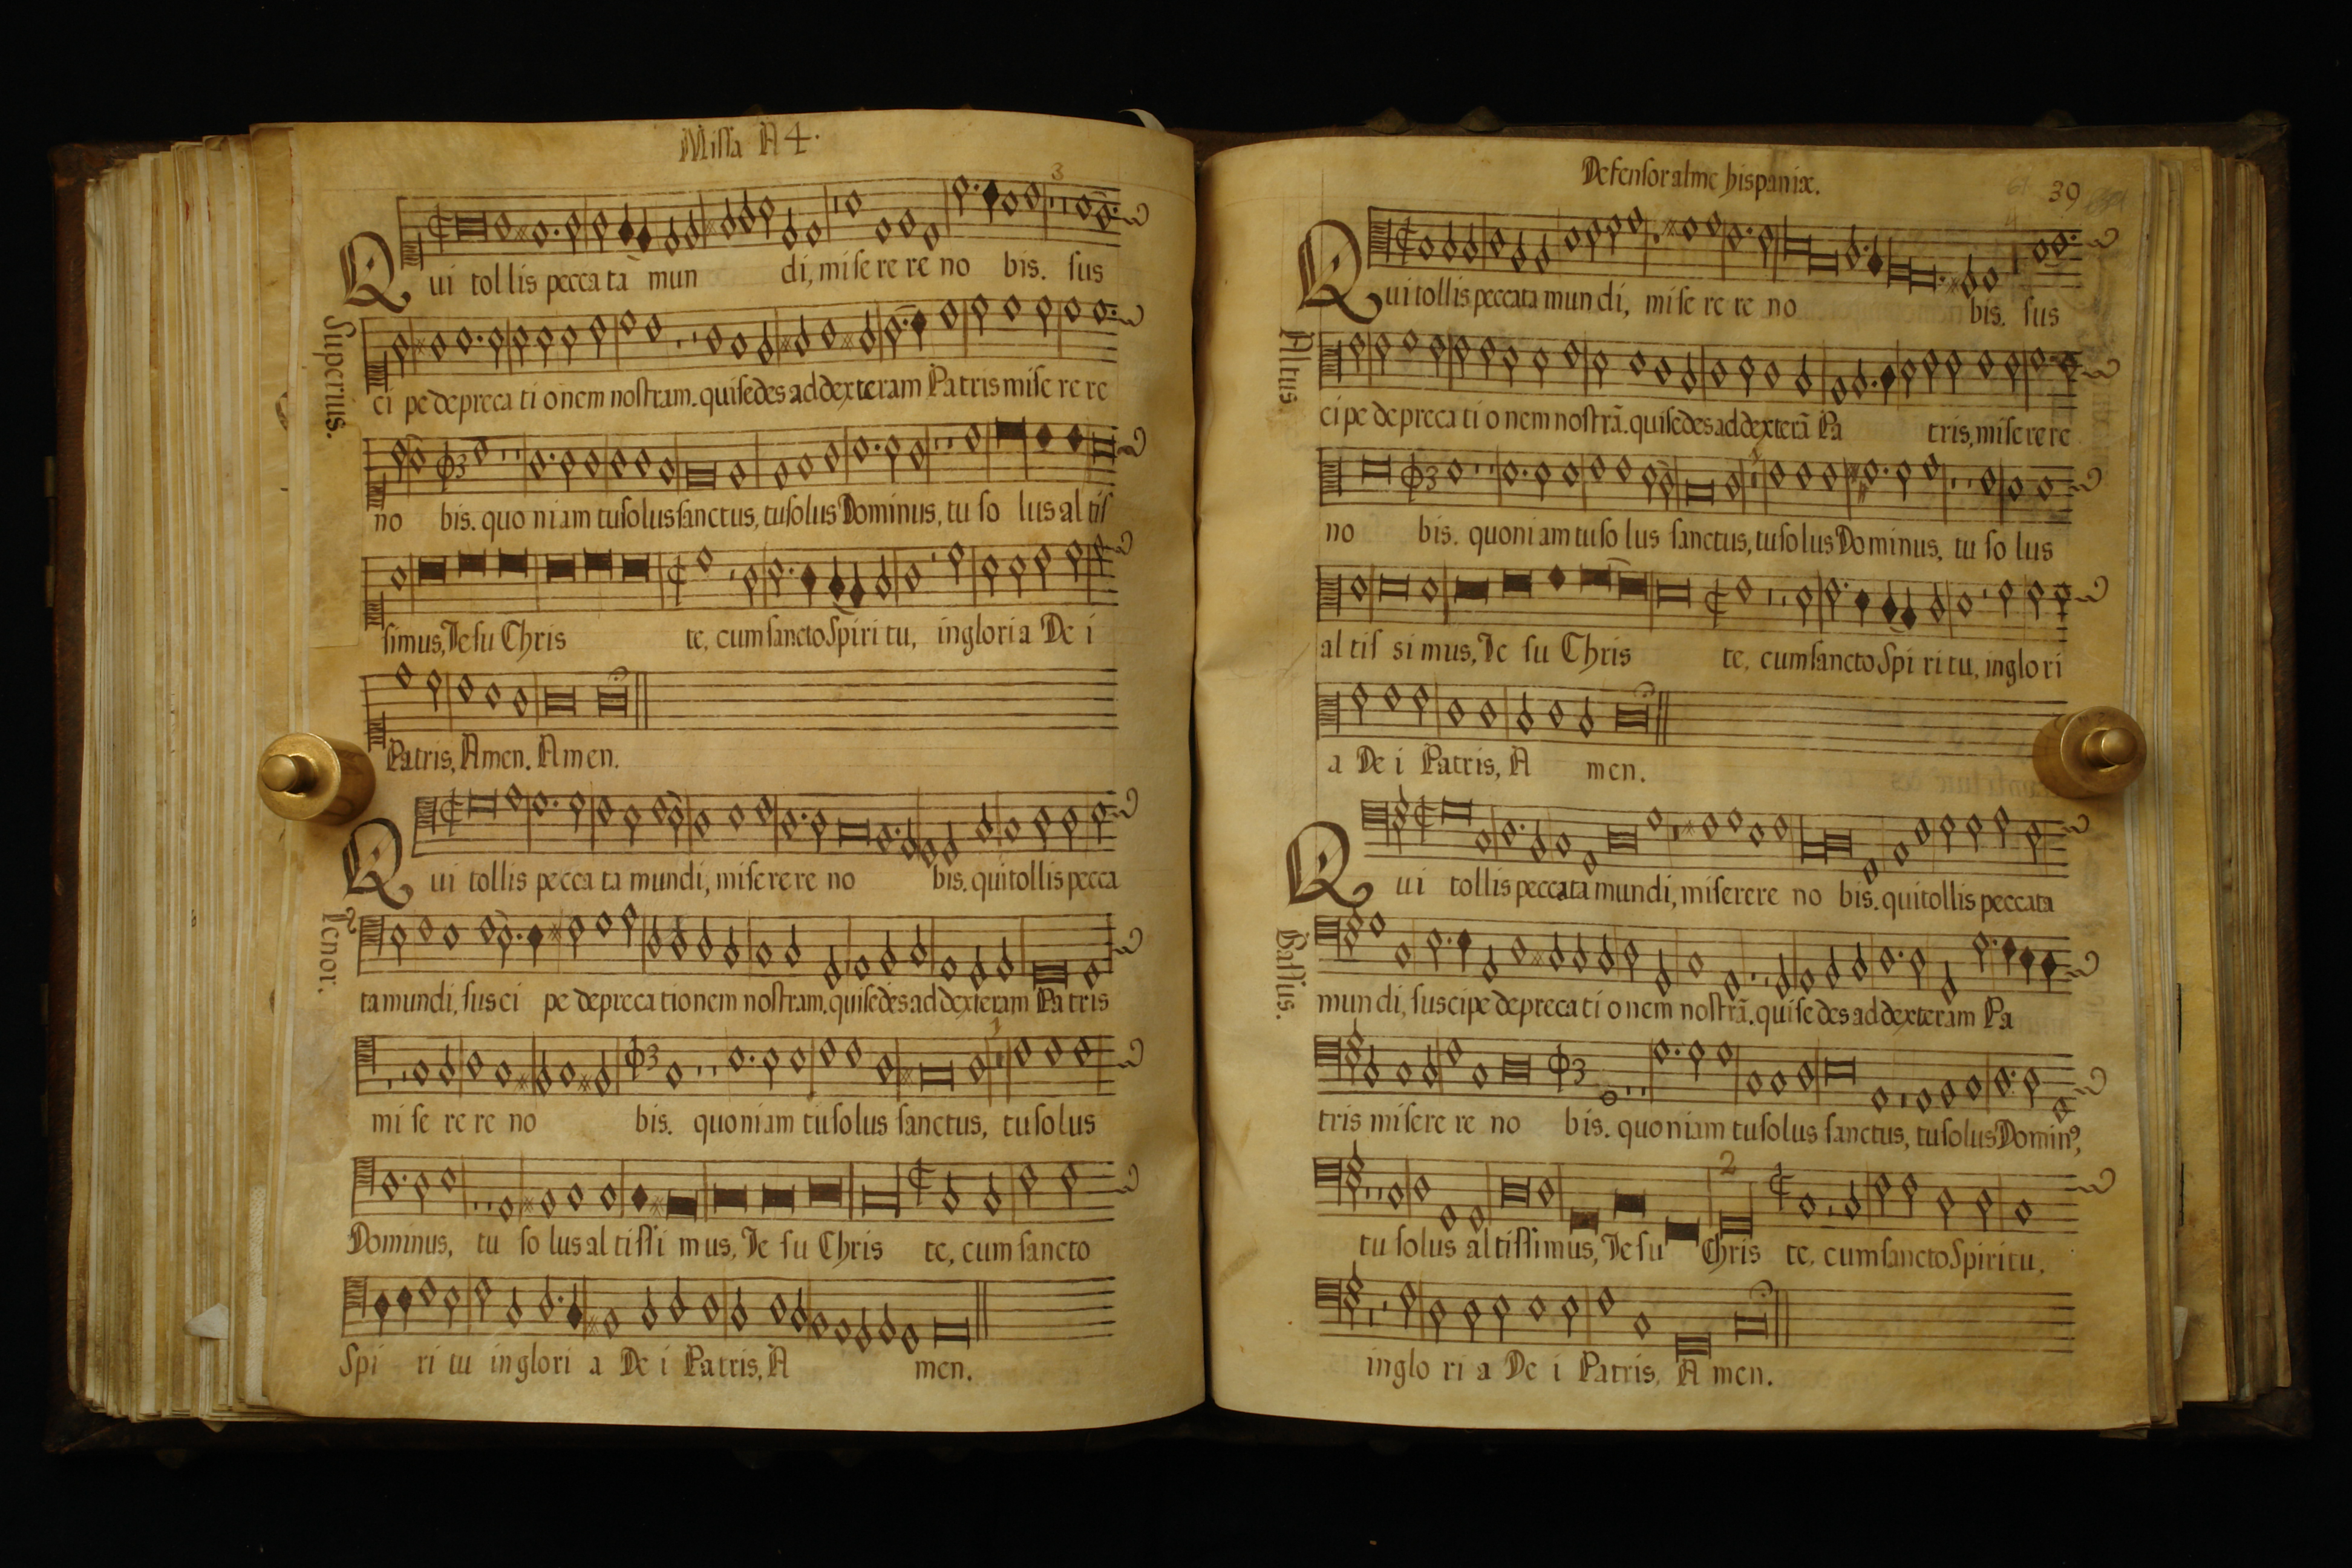 Missa A 4.
3
Qui tollis peccata mun di, miserere no bis. sus
Superius.
ci pe deprecationem nostram. qui sedes ad dexteram Patris miserere
no bis. quoniam tu solus sanctus, tu solus Dominus, tu so lus al tis
simus, Jesu Chris te, cum sancto Spiritu, in gloria De i
Patris, Amen. Amen.
Qui tollis pecca ta mundi, miserere no bis. qui tollis pecca
Tenor.
ta mundi, sus ci pe deprecationem nostram. qui sedes ad dexteram Pa tris
mi se re re no bis. quoniam tu solus sanctus, tu solus
Dominus, tu so lus al tissi mus, Je su Chris te, cum sancto
Spi ri tu in glori a De i Patris, A men.
Defensor alme hispaniæ.
39
Qui tollis peccata mundi, mi se re re no bis. sus
Altus.
ci pe de preca ti o nem nostrã. qui sedes ad dexterã Pa tris, miserere
no bis. quoniam tu so lus sanctus, tu solus Dominus, tu so lus
al tis si mus, Je su Chris te, cum sancto Spi ri tu, in glo ri
a De i Patris, A men.
Qui tollis peccata mundi, miserere no bis. qui tollis peccata
Bassus.
mundi, suscipe depreca ti o nem nostrã. qui sedes ad dexteram Pa
tris misere re no bis. quoniam tu solus sanctus, tu solus Domin9,
2
tu solus altissimus, Jesu Chris te, cum sancto Spiritu,
in glo ri a De i Patris, A men.